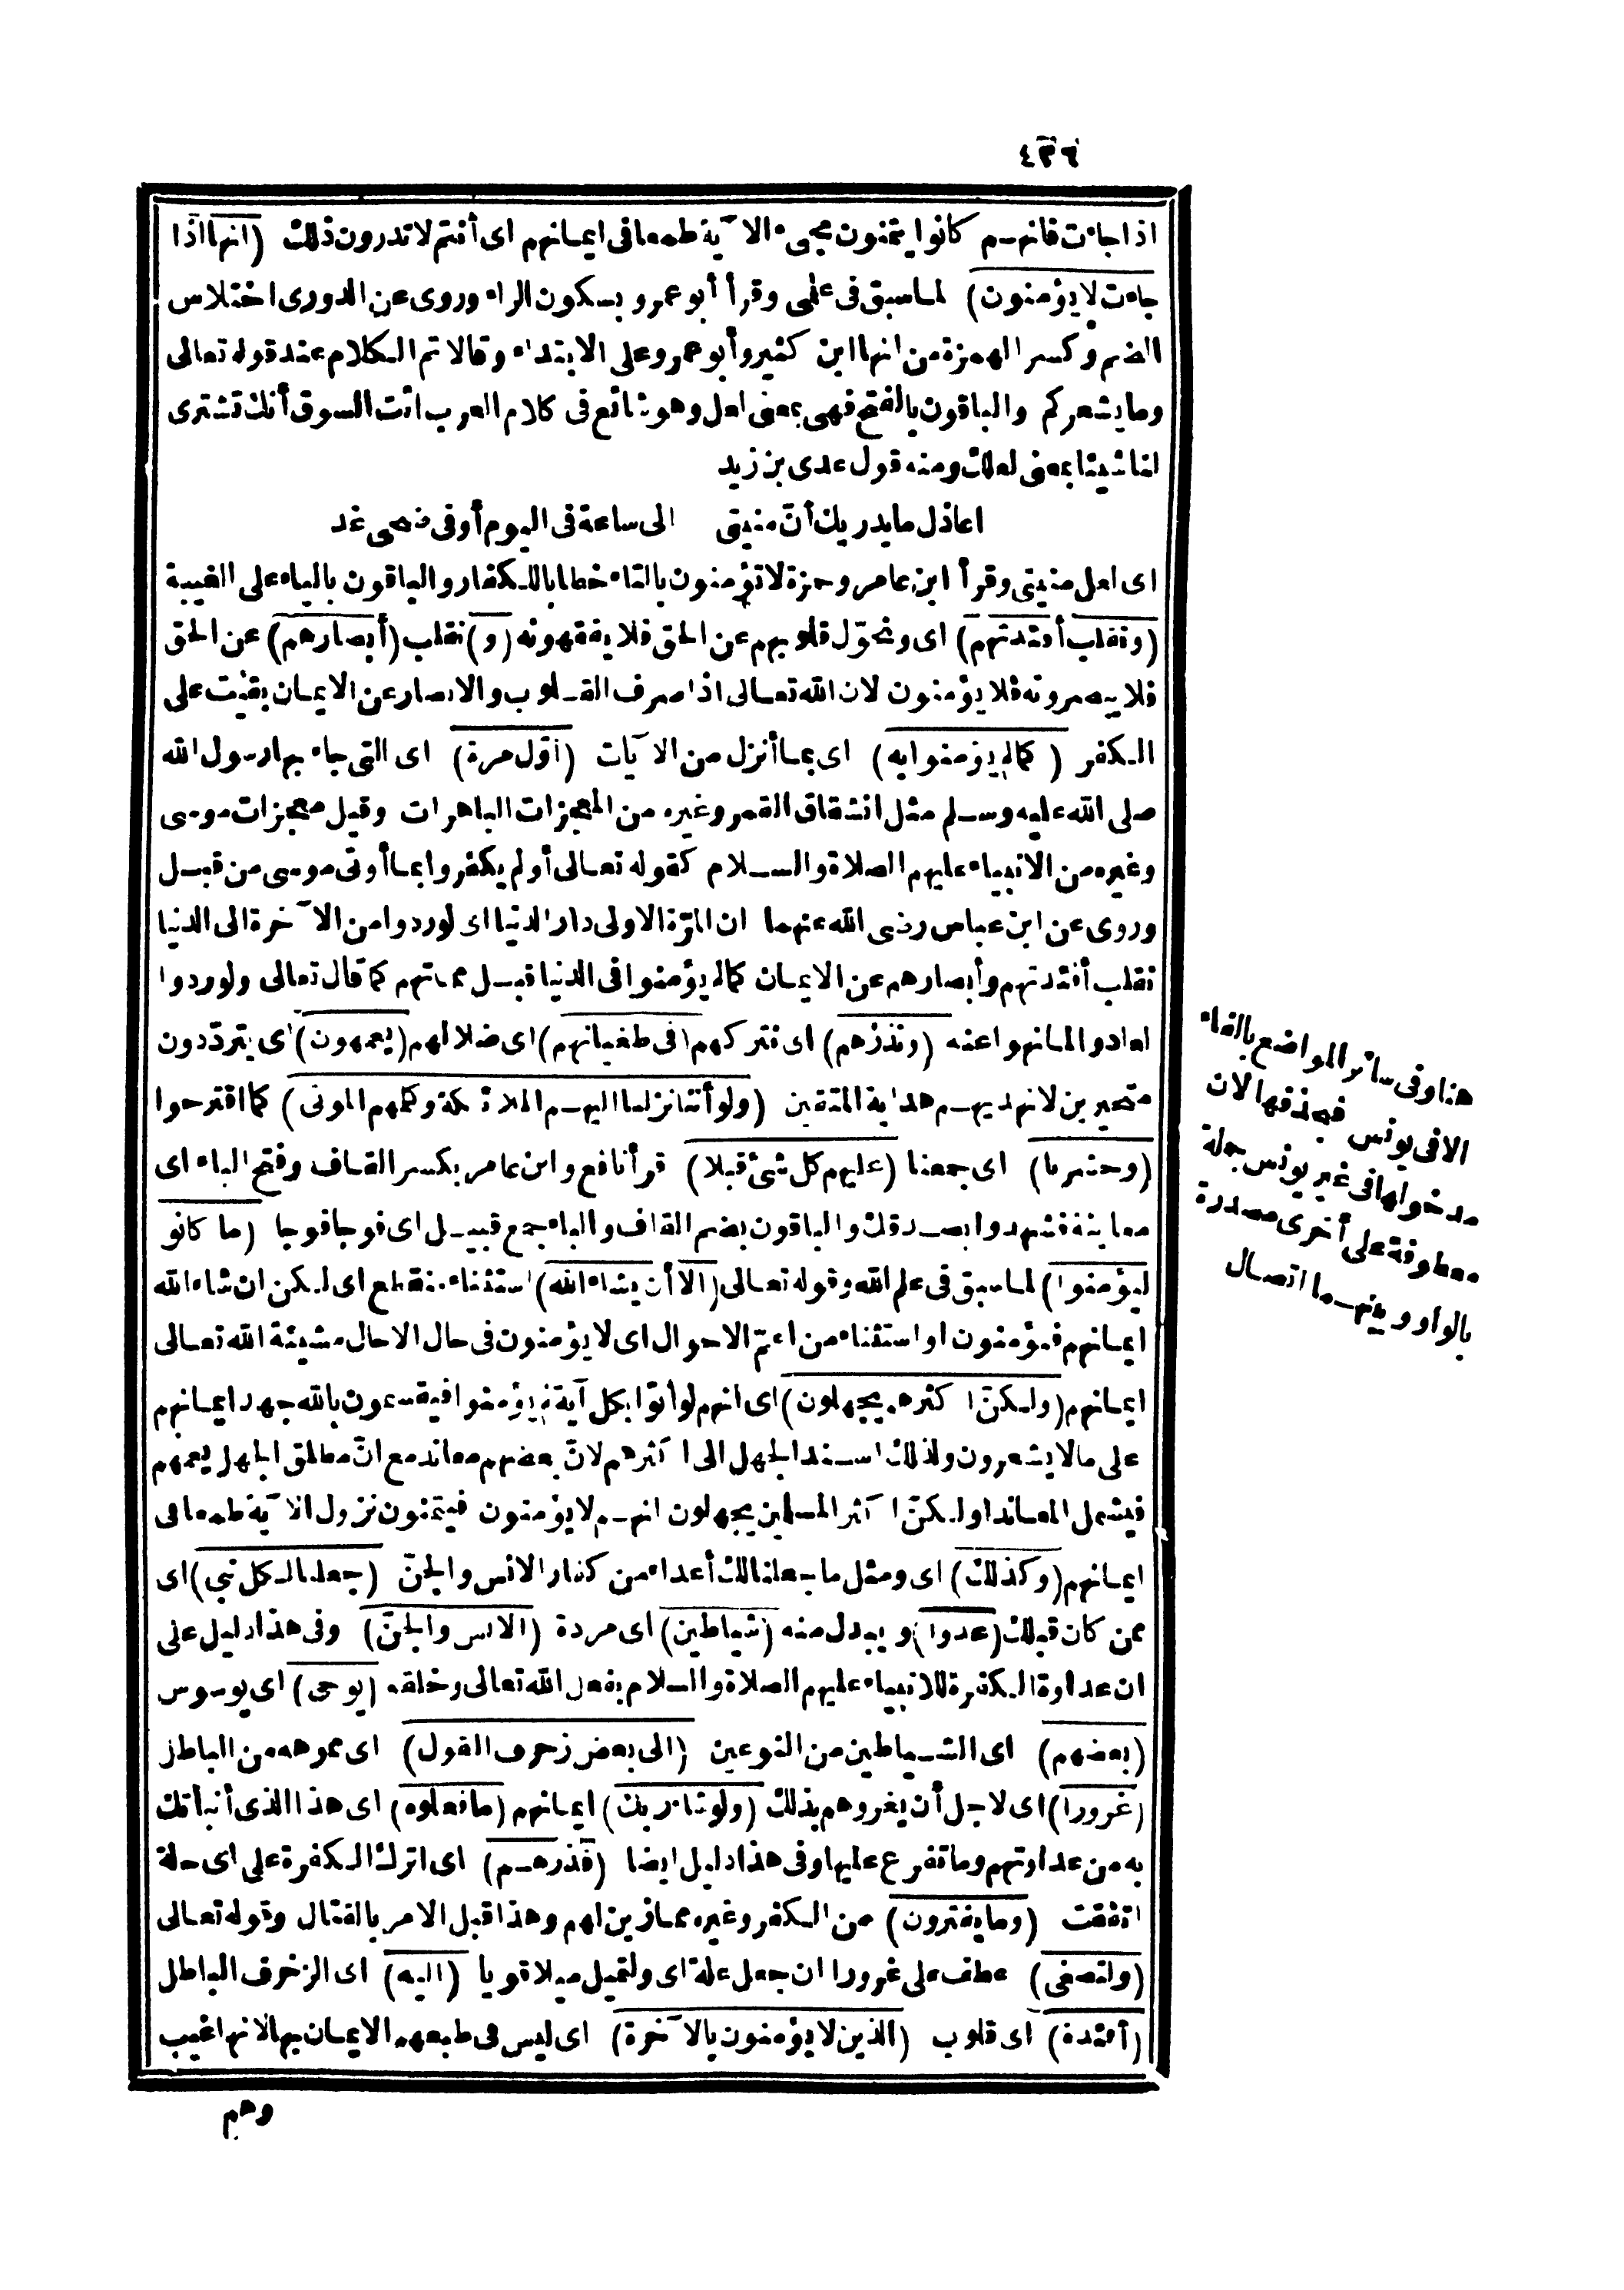 ٤٣٦
اذا جاءت فانهم كانوا يتمنون مجىء الآية طمعا فى ايمانهم اى أنتم لا تدرون ذلك (انها اذا
جاءت لا يؤمنون) لما سبق فى علمى وقرأ أبو عمرو بسكون الراء وروى عن الدورى اختلاس
الضم وكسر الهمزة من انها ابن كثير وأبو عمرو على الابتداء وقالا تم الكلام عند قوله تعالى
وما يشعركم والباقون بالفتح فهى بمعنى لعل وهو شائع فى كلام العرب ائت السوق أنك تشترى
لنا شيئا بمعنى لعلك ومنه قول عدى بن زيد
اعاذل ما يدريك أنّ منيتى الى ساعة فى اليوم أو فى ضحى غد
اى لعل منيتى وقرأ ابن عامر وحمزة لا تؤمنون بالتاء خطابا للكفار والباقون بالياء على الغيبة
(ونقلب أفئدتهم) اى ونحوّل قلوبهم عن الحق فلا يفقهونه (و) نقلب (أبصارهم) عن الحق
فلا يبصرونه فلا يؤمنون لان الله تعالى اذا صرف القلوب والابصار عن الايمان بقيت على
الكفر (كما لم يؤمنوا به) اى بما أنزل من الآيات (أوّل مرة) اى التى جاء بها رسول الله
صلى الله عليه وسلم مثل انشقاق القمر وغيره من المعجزات الباهرات وقيل معجزات موسى
وغيره من الانبياء عليهم الصلاة والسلام كقوله تعالى أولم يكفروا بما أوتى موسى من قبل
وروى عن ابن عباس رضى الله عنهما ان المرّة الاولى دار الدنيا اى لو ردوا من الآخرة الى الدنيا
نقلب أفئدتهم وأبصارهم عن الايمان كما لم يؤمنوا فى الدنيا قبل مماتهم كما قال تعالى ولو ردوا
لعادوا لما نهوا عنه (ونذرهم) اى نتركهم (فى طغيانهم) اى ضلالهم (يعمهون) اى يتردّدون
متحيرين لا نهديهم هداية المتقين (ولو أننا نزلنا اليهم الملائكة وكلمهم الموتى) كما اقترحوا
(وحشرنا) اى جمعنا (عليهم كل شئ قبلا) قرأ نافع وابن عامر بكسر القاف وفتح الباء اى
معاينة فشهدوا بصدقك والباقون بضم القاف والباء جمع قبيل اى فوجا فوجا (ما كانوا
ليؤمنوا) لما سبق فى علم الله وقوله تعالى (الا أن يشاء الله) استثناء منقطع اى لكن ان شاء الله
ايمانهم فيؤمنون او استثناء من اعمّ الاحوال اى لا يؤمنون فى حال الا حال مشيئة الله تعالى
ايمانهم (ولكنّ اكثرهم يجهلون) اى انهم لو أتوا بكل آية لم يؤمنوا فيقسمون بالله جهد ايمانهم
على ما لا يشعرون ولذلك اسند الجهل الى اكثرهم لانّ بعضهم معاند مع انّ مطلق الجهل يعمهم
فيشمل المعاند او لكنّ اكثر المسلمين يجهلون انهم لا يؤمنون فيتمنون نزول الآية طمعا فى
ايمانهم (وكذلك) اى ومثل ما جعلنا لك أعداء من كفار الانس والجنّ (جعلنا لكل نبى) اى
ممن كان قبلك (عدوا) ويبدل منه (شياطين) اى مردة (الانس والجنّ) وفى هذا دليل على
ان عداوة الكفرة للانبياء عليهم الصلاة والسلام بفعل الله تعالى وخلقه (يوحى) اى يوسوس
(بعضهم) اى الشياطين من النوعين (الى بعض زخرف القول) اى مموهه من الباطل
(غرورا) اى لاجل أن يغروهم بذلك (ولو شاء ربك) ايمانهم (ما فعلوه) اى هذا الذى أنبأتك
به من عداوتهم وما تفرع عليها وفى هذا دليل ايضا (فذرهم) اى اترك الكفرة على اى حالة
اتفقت (وما يفترون) من الكفر وغيره مما زين لهم وهذا قبل الامر بالقتال وقوله تعالى
(ولتصغى) عطف على غرورا ان جعل علة اى ولتميل ميلا قويا (اليه) اى الزخرف الباطل
(أفئدة) اى قلوب (الذين لا يؤمنون بالآخرة) اى ليس فى طبعهم الايمان بها لانها غيب
وهم
هنا وفى سائر المواضع بالفاء
الا فى يونس فبحذفها لان
مدخولها فى غير يونس جملة
معطوفة على أخرى مصدرة
بالواو وبينهما اتصال